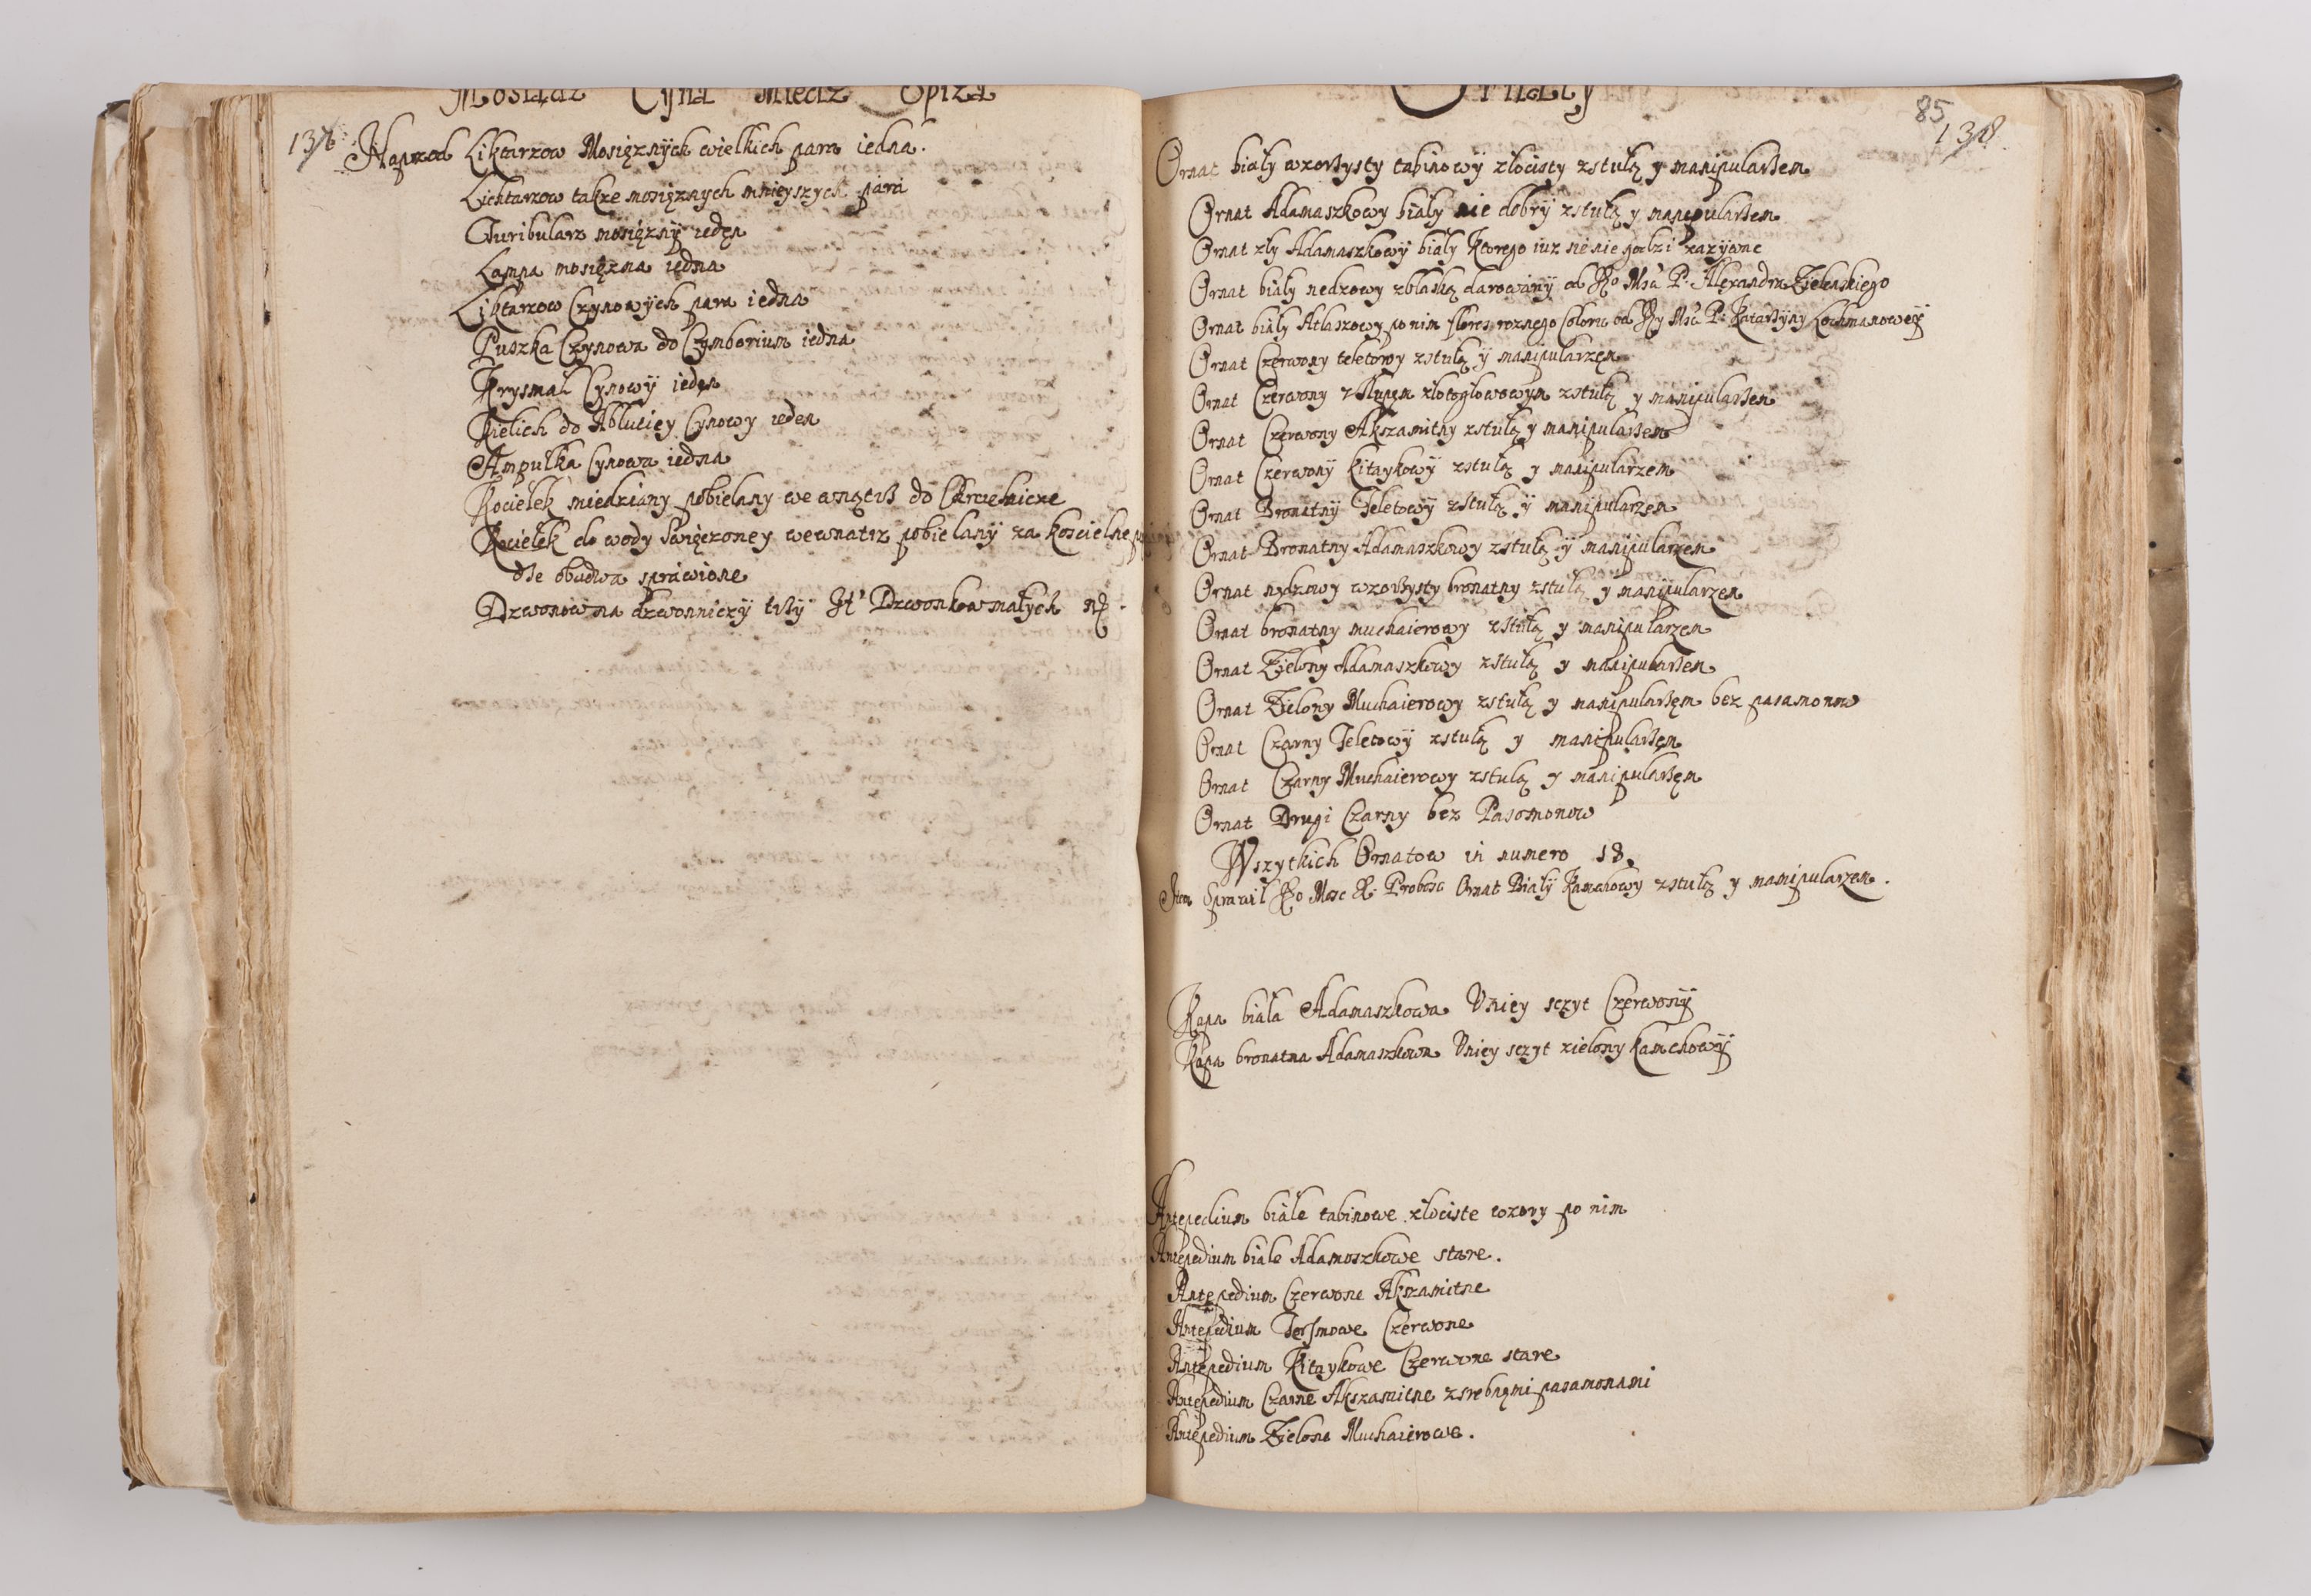 Mosiądz Cyna Miedz Spiza
137
Naprzod Liktarzow Mosięznych wielkich para iedna.
Lichtarzow takze mosięznych mnieyszych para
Turibularz mosięzny ieden
Lampa mosięzna iedna
Liktarzow Czynowych para iedna
Puszka Czynowa do Czymborium iedna
Krysmal Cynowÿ ieden
Kielich do Abluciey Cynowy ieden
Ampułka Cynowa iedna
Kociełek miedziany pobielany we wnątrz do Chrcielnice
Kociełek do wody Swięzoney wewnatrz pobielanÿ za koscielne
obudwa sprawione
Dzwonow na dzwonniczÿ trzÿ It' Dzwonkow małych
Ornaty
85
138
Ornat biały wzorzysty tabinowÿ złocisty zstułą y manipularzem
Ornat Adamaszkowy biały nie dobrÿ zstułą y manipularzem
Ornat zły Adamaszkowÿ biały ktorego iuz sie nie godzi zazywac
Ornat białÿ nedzowy zblaską darowanÿ od Jego Mści P. Alexandra Zielenskiego
Ornat białÿ Atlasowy po nim flores roznego Coloru od Jey Mści P. Katarzÿny Lochmanoweÿ
Ornat Czerwony teletowy zstułą ÿ manipularzem
Ornat Czerwony z słupem złotogłowowym zstułą y manipularzem
Ornat Czerwonÿ Akszamitny zstułą y manipularzem
Ornat Czerwonÿ Kitaykowÿ zstułą y manipularzem
Ornat Bronatnÿ Teletowÿ zstułą ÿ manipularzem
Ornat Bronatny Adamaszkowy zstułą ÿ manipularzem
Ornat nydzowy wzorzysty bronatny zstułą y manipularzem
Ornat bronatny muchaierowy zstułą y manipularzem
Ornat Zielony Adamaszkowy zstułą y manipularzem
Ornat Zielony Muchaierowy zstułą y manipularzem bez pasamonow
Ornat Czarny Teletowÿ zstułą y manipularzem
Ornat Czarny Muchaierowy zstułą y manipularzem
Ornat Drugi Czarny bez Pasomonow
Wszytkich Ornatow in numero 18.
Item Sprawił Jego Mosc X. Probosc Ornat Białÿ Kamchowy zstułą y manipularzem.
Kapa biała Adamaszkowa Uniey sczyt Czerwonÿ
Kapa bronatna Adamaszkowa Uniey sczyt zielony Kamchowÿ
Antepedium białe tabinowe złociste wzory po nim
Antepedium białe Adamoszkowe stare.
Antepedium Czerwone Akszamitne
Antepedium Czerwone
Antepedium Kitaykowe Czerwone stare
Antepedium Czarne Akszamitne zsrebnymi pasamonami
Antepedium Zielone Muchaierowe.